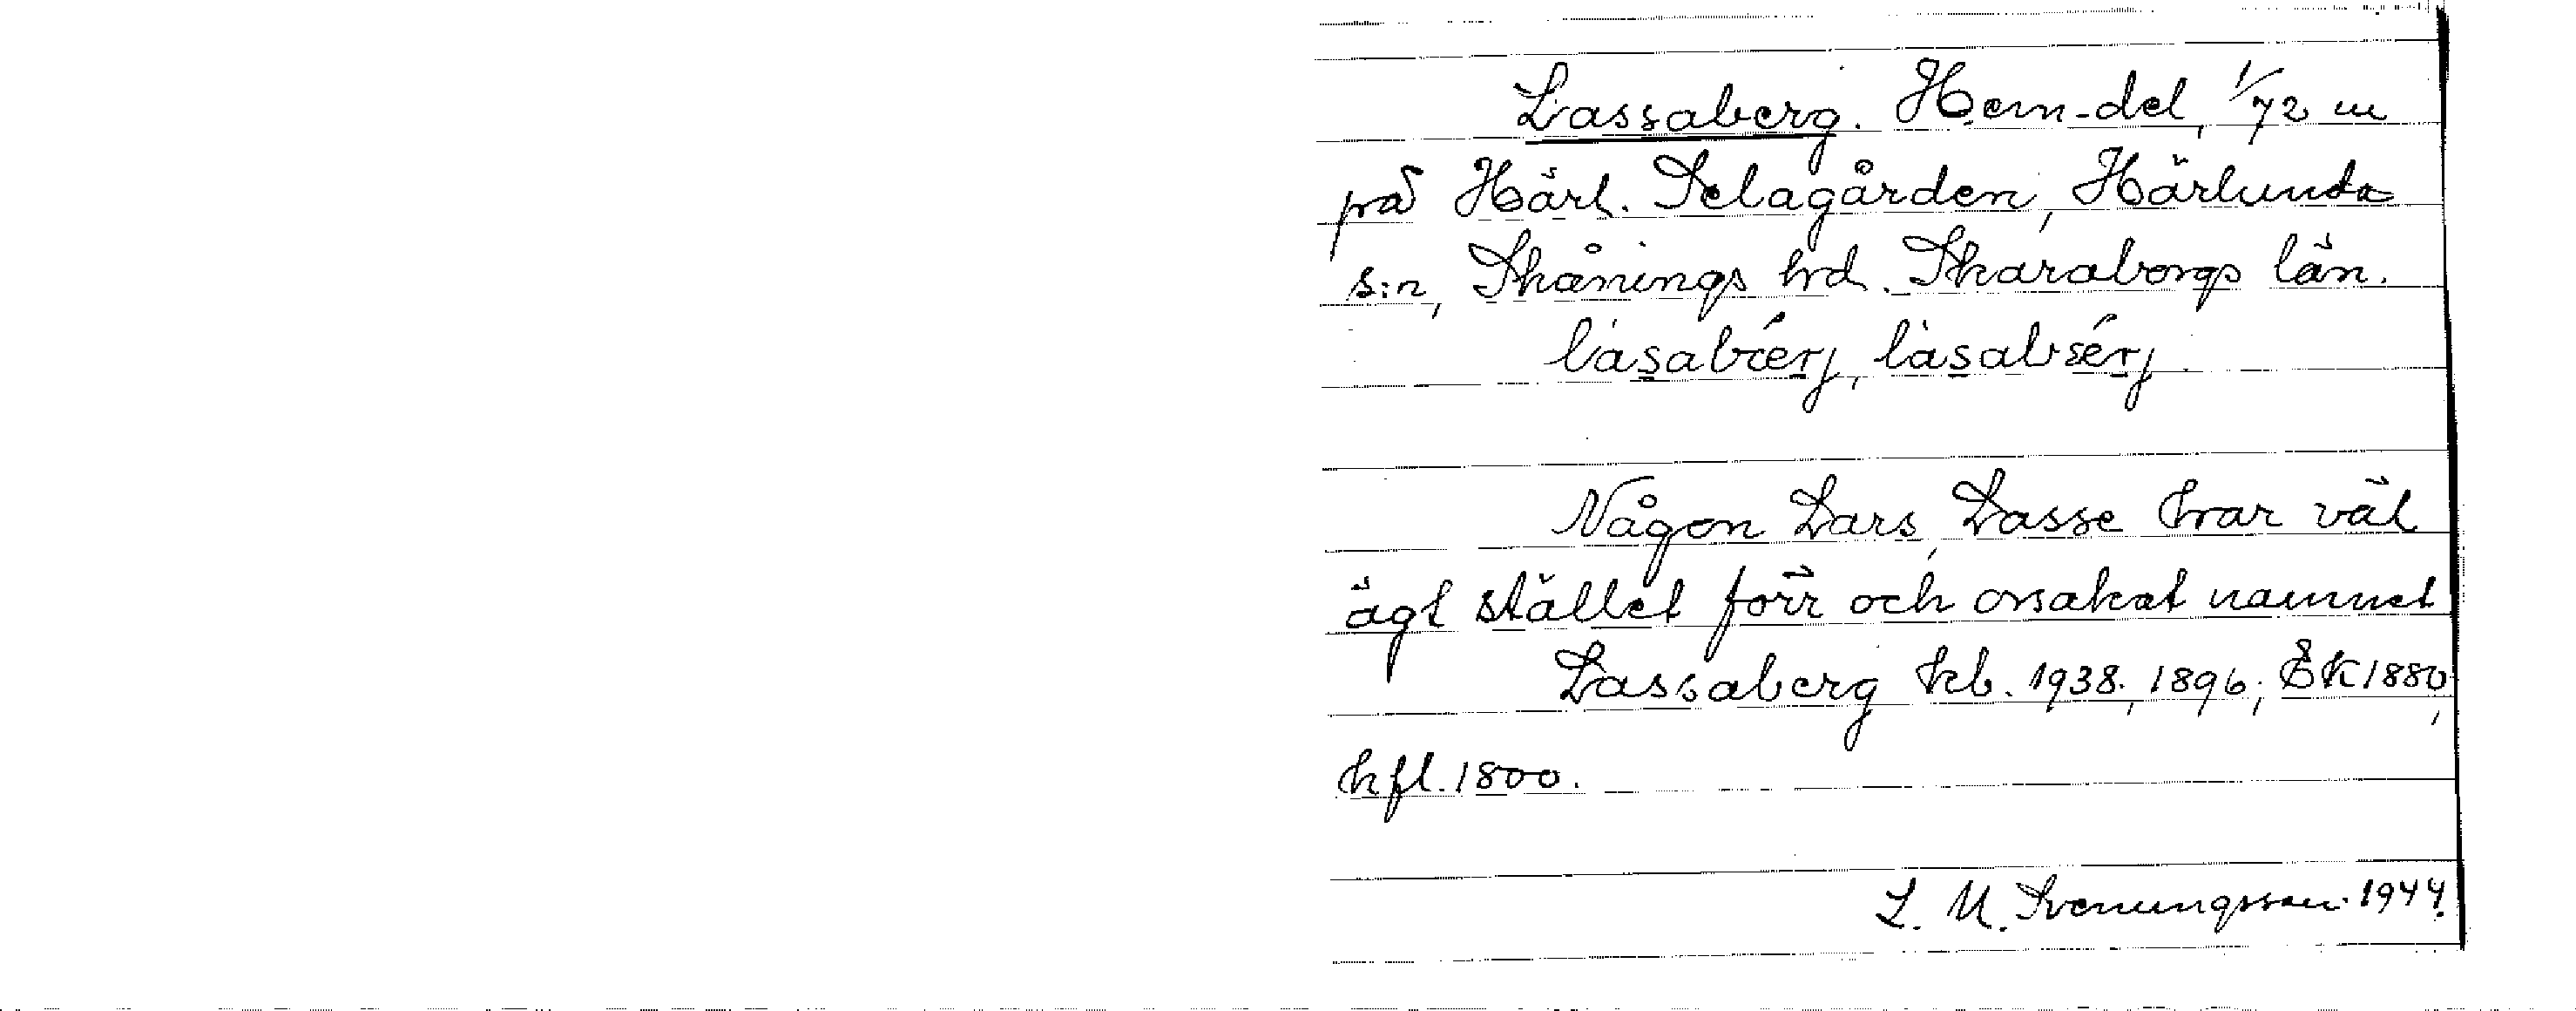 Lassaberg. Hem-del, 1/72 m
på Härl. Selagården, Härlunda
s:n, Skånings hrd. Skaraborgs län.
Någon Lars, Lasse har väl
ägt stället förr och orsakat namnet
Lassaberg kb. 1938, 1896; EK 1880,
hfl. 1800.
L. M. Svenungsson 1944.